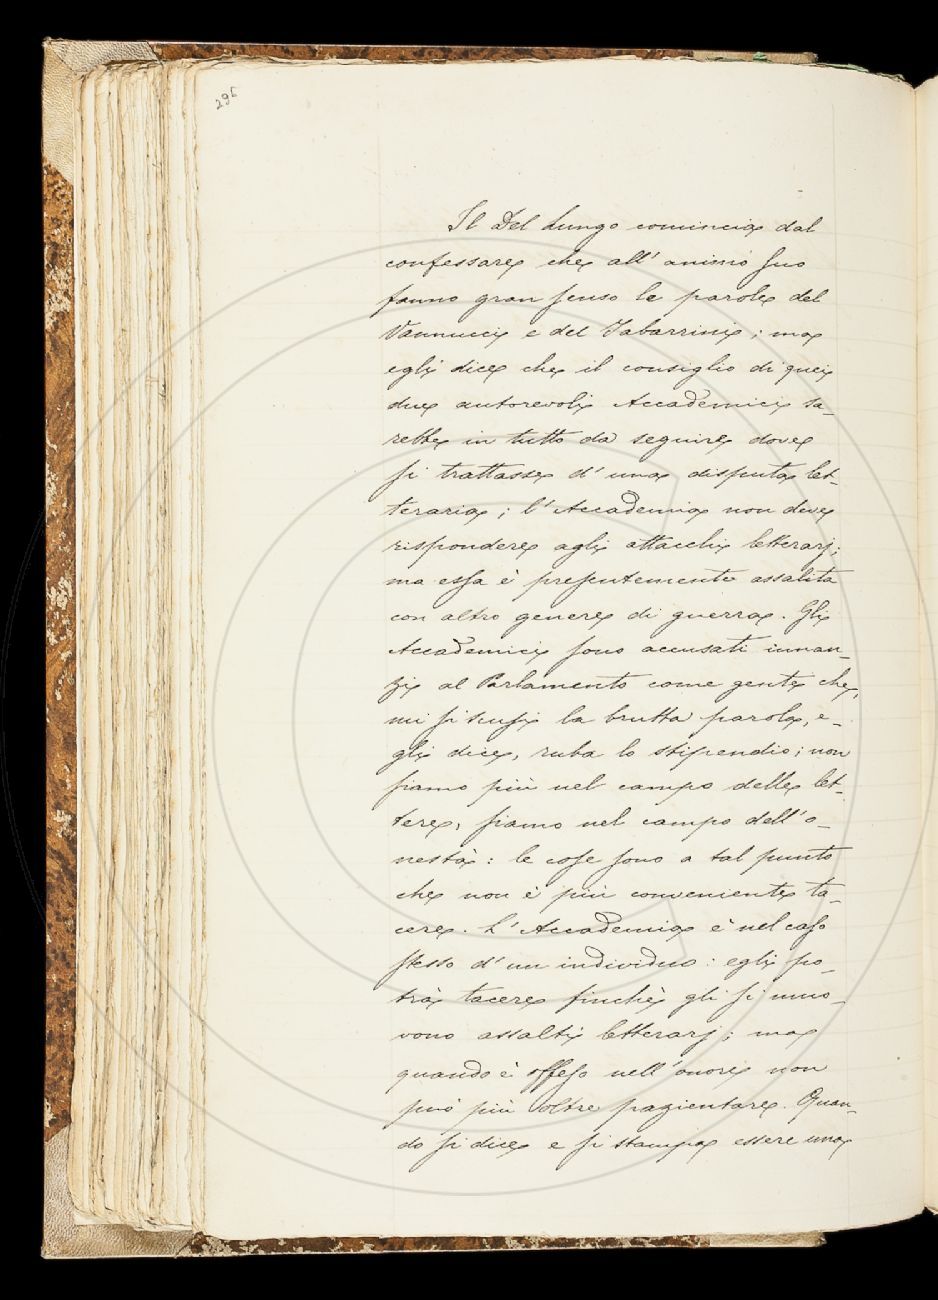 296
Il Del Lungo comincia dal
confessare che all'animo suo
fanno gran senso le parole del
Vannucci e del Tabarrini; ma
egli dice che il consiglio di quei
due autorevoli Accademici sa-
rebbe in tutto da seguire dove
si trattasse d'una disputa let-
teraria; l'Accademia non deve
rispondere agli attacchi letterarj;
ma essa è presentemente assalita
con altro genere di guerra. Gli
Accademici sono accusati innan-
zi al Parlamento come gente che,
mi si scusi la brutta parola, e-
gli dice, ruba lo stipendio; non
siamo più nel campo delle let-
tere, siamo nel campo dell'o-
nestà: le cose sono a tal punto
che non è più conveniente ta-
cere. L'Accademia è nel caso
stesso d'un individuo: egli po-
trà tacere finchè gli si muo-
vono assalti letterarj; ma
quando è offeso nell'onore non
può più oltre pazientare. Quan-
do si dice e si stampa essere una